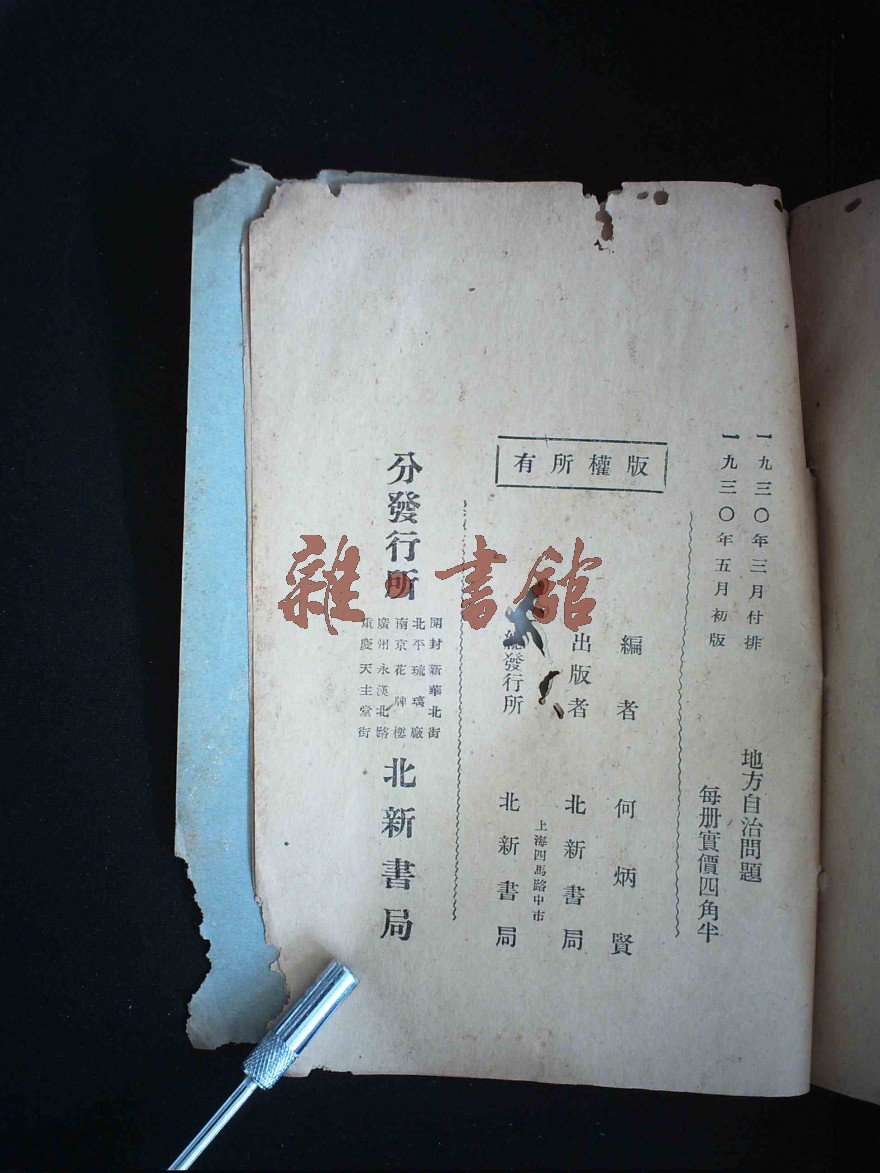 一九三〇年三月付排
一九三〇年五月初版
地方自治問題
每册實價四角半
版權所有
編者 何炳賢
出版者 北新書局
上海四馬路中市
總發行所 北新書局
分發行所
開封新華北街
北平琉璃廠
南京花牌樓
廣州永漢北路
重慶天主堂街
北新書局
雜書館